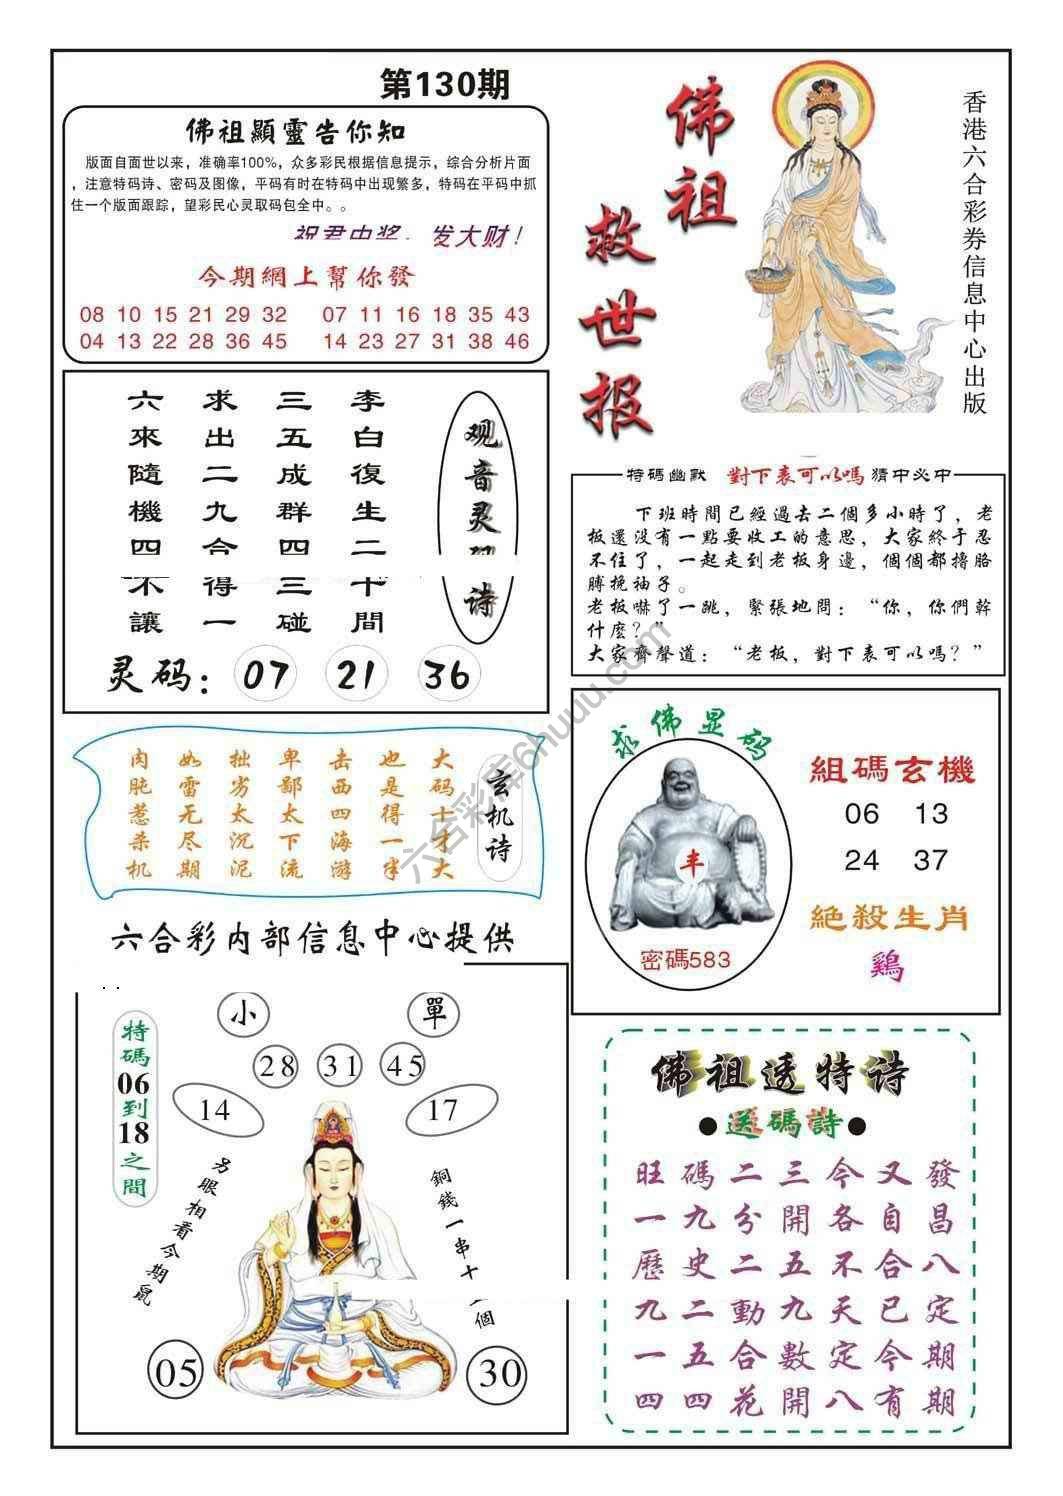 第130期
佛祖顯靈告你知
版面自面世以来，准确率100%，众多彩民根据信息提示，综合分析片面
，注意特码诗、密码及图像，平码有时在特码中出现繁多，特码在平码中抓
住一个版面跟踪，望彩民心灵取码包全中。。
祝君中奖，发大财！
今期網上幫你發
08 10 15 21 29 32 07 11 16 18 35 43
04 13 22 28 36 45 14 23 27 31 38 46
佛祖救世报
香港六合彩券信息中心出版
观音灵
诗
李白復生二十間
三五成群四三碰
求出二九合得一
六來隨機四不讓
灵码：07 21 36
特碼幽默 對下表可以嗎 猜中必中
下班時間已經過去二個多小時了，老
板還没有一點要收工的意思，大家終于忍
不住了，一起走到老板身邊，個個都擼胳
膊挽袖子。
老板嚇了一跳，緊張地問：“你，你們幹
什麽？”
大家齊聲道：“老板，對下表可以嗎？”
玄机诗
大码十才大
也是得一半
击西四海游
卑鄙太下流
拙劣太沉泥
如雷无尽期
肉肫惹杀机
求佛显码
丰
密碼583
組碼玄機
06 13
24 37
絕殺生肖
鷄
六合彩内部信息中心提供
特碼06到18之間
小 單
28 31 45
14 17
另眼相看今期鼠
銅錢一串十二個
05 30
佛祖透特诗
●送碼詩●
旺碼二三今又發
一九分開各自昌
歷史二五不合八
九二動九天已定
一五合數定今期
四四花開八有期
六合彩库6huuu.com